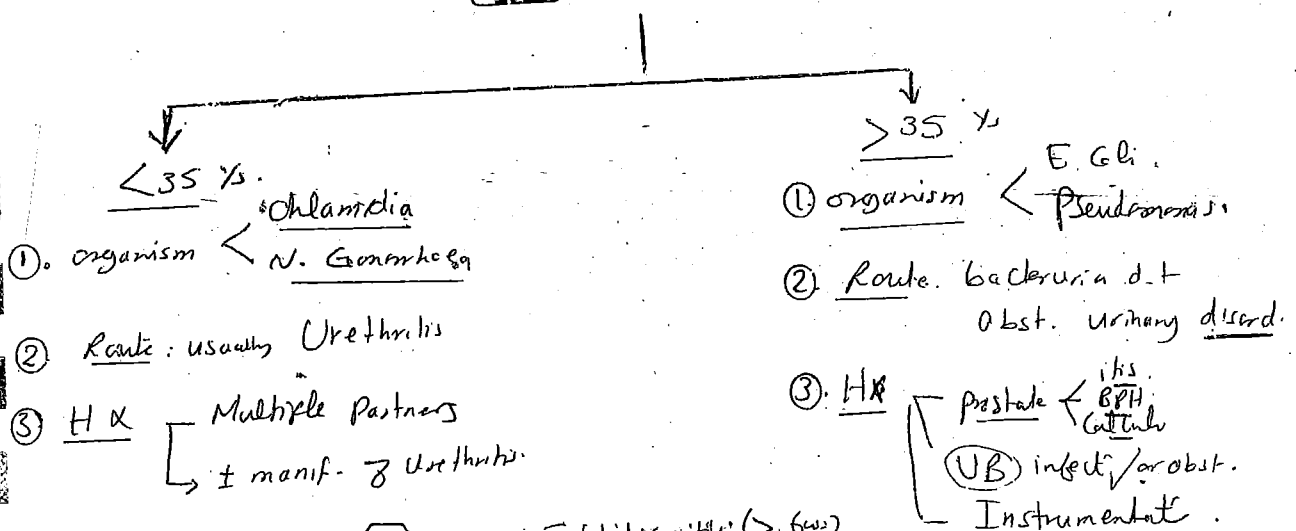 <35 ys.
① organism < Chlamidia
N. Gonorrhoea
② Route : usually Urethritis
③ Hx Multiple Partners
± manif. of Urethritis.
>35 ys
① organism < E. Coli.
Pseudomonas.
② Route. bacteruria d.t
Obst. urinary disord.
③ Hx prostate < itis.
BPH.
UB infect / or obst.
Instrumentat.